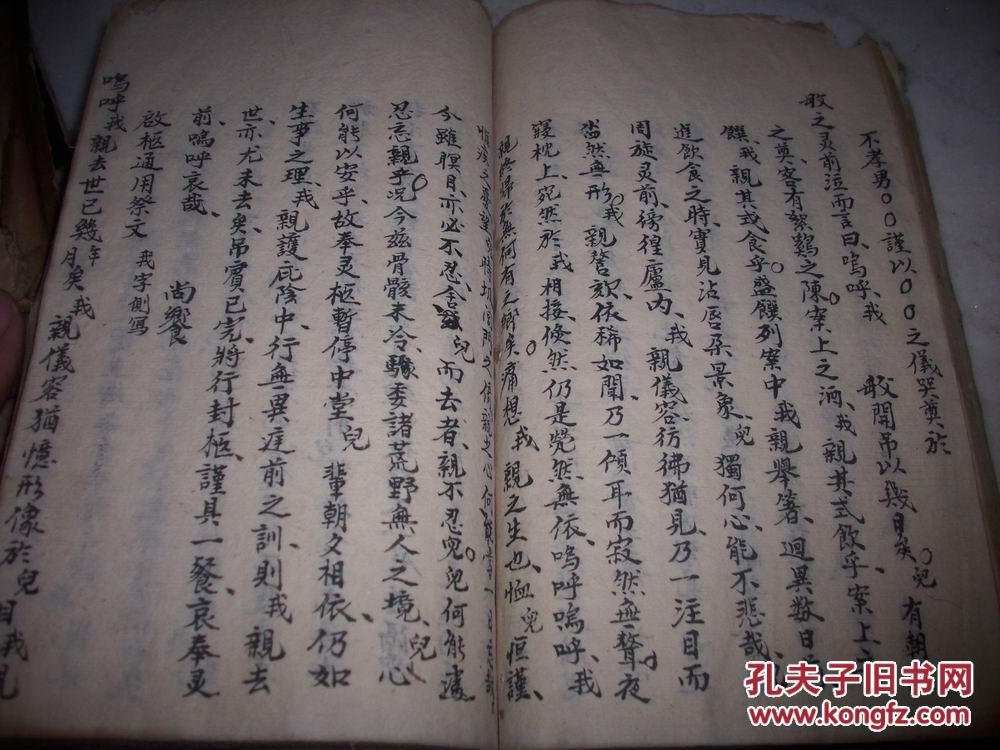 不孝男〇〇謹以〇〇之儀哭奠於
殁之灵前泣而言曰嗚呼我 殁開吊以幾日矣兒有朝
之奠客有絮鷄之陳案上之酒我親其式飲乎案上
饌我親其式食乎盛饌列案中我親舉箸迥異数日
進飲食之時實見沾唇朶景象兒獨何心能不悲哉
周旋灵前徬徨廬內我親儀容彷彿猶見乃一注目而
杳然無形我親謦欬依稀如聞乃一傾耳而寂然無聲夜
寢枕上宛然於我相接倏然仍是覺然無依嗚呼嗚呼我
親終歸於無何有之鄉矣痛想我親之生也恤兒恒謹
今雖瞑目亦必不忍舍兒而去者親不忍兒兒何能遽
忍忘親乎况今兹骨骸未冷驟委諸荒野無人之境兒心
何能以安乎故奉灵柩暫停中堂兒輩朝夕相依仍如
生事之理我親護庇陰中行無異庭前之訓則我親去
世亦尤未去矣吊賓已完將行封柩謹具一餐哀奉灵
前嗚呼哀哉 尚饗
啟柩通用祭文 我字側寫
嗚呼我親去世已幾年月矣我親儀容猶憶形像於兒目我見
孔夫子旧书网
www.kongfz.com